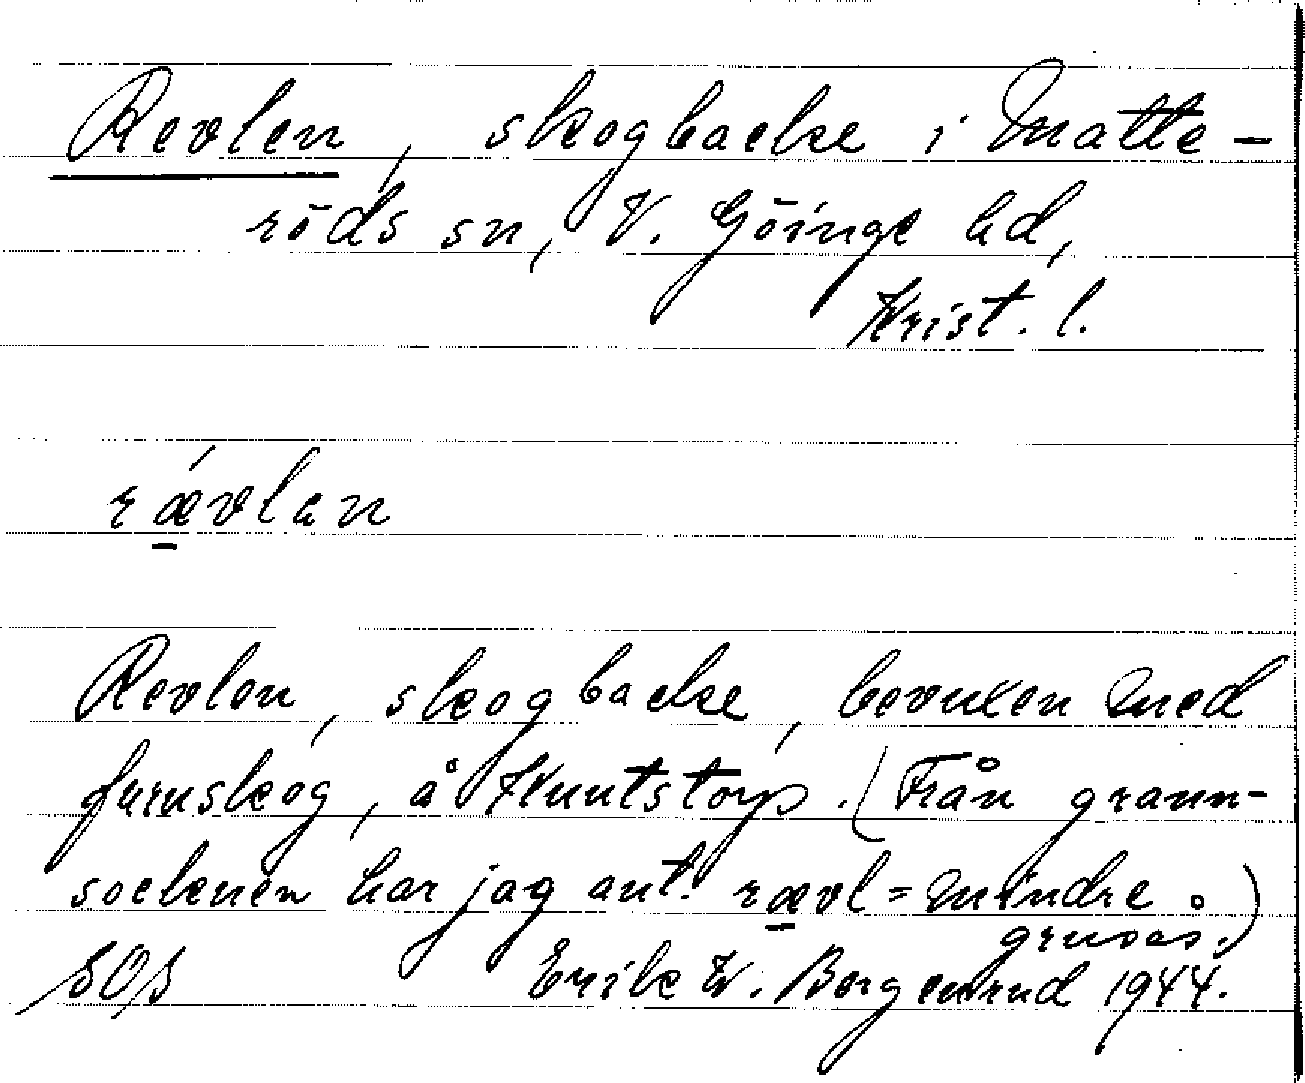 Revlen, skogbacke i Matte-
röds sn, V. Göinge hd,
Krist. l.
rǽvlan
Revlen, skogbacke, bevuxen med
furuskog, å Knutstorp. (Från grann-
socknen har jag ant. rævl = mindre
grusås.)
SOS Erik W. Bergenrud 1944.